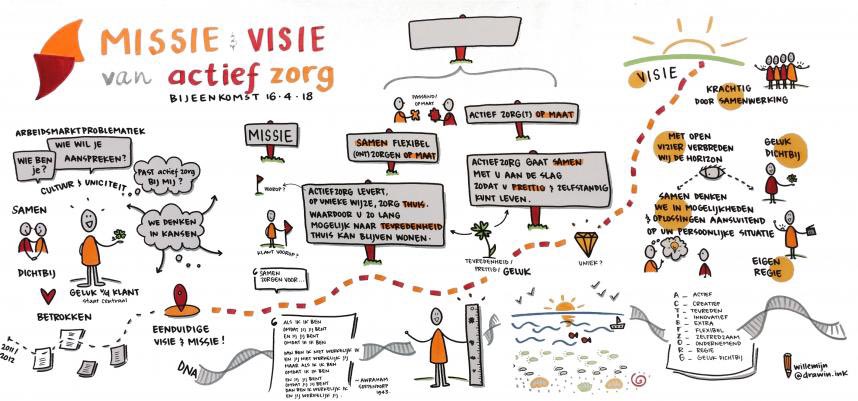 MISSIE & VISIE
van actief zorg
BIJEENKOMST 16·4·18
ARBEIDSMARKTPROBLEMATIEK
WIE BEN
je?
WIE WIL JE
AANSPREKEN?
CULTUUR & UNICITEIT
PAST actief zorg
BIJ MIJ?
WE DENKEN
IN KANSEN
SAMEN
DICHTBIJ
BETROKKEN
GELUK v/d KLANT
staat centraal
2011
2012
EENDUIDIGE
VISIE & MISSIE!
DNA
MISSIE
VOOROP?
KLANT VOOROP?
SAMEN
ZORGEN VOOR...
PASSEND/
OP MAAT
SAMEN FLEXIBEL
(ONT)ZORGEN OP MAAT
ACTIEF ZORG(T) OP MAAT
ACTIEFZORG LEVERT,
OP UNIEKE WIJZE, ZORG THUIS.
WAARDOOR U ZO LANG
MOGELIJK NAAR TEVREDENHEID
THUIS KAN BLIJVEN WONEN.
ACTIEFZORG GAAT SAMEN
MET U AAN DE SLAG
ZODAT U PRETTIG & ZELFSTANDIG
KUNT LEVEN.
TEVREDENHEID/
PRETTIG/ GELUK
UNIEK?
ALS IK IK BEN
OMDAT JIJ JIJ BENT
EN JIJ JIJ BENT
OMDAT IK IK BEN
DAN BEN IK NIET WERKELIJK IK
EN JIJ NIET WERKELIJK JIJ
MAAR ALS IK IK BEN
OMDAT IK IK BEN
EN JIJ JIJ BENT
OMDAT JIJ JIJ BENT
DAN BEN IK WERKELIJK IK
EN JIJ WERKELIJK JIJ.
- AWRAHAM
SOETENDORP
1943.
VISIE
KRACHTIG
DOOR SAMENWERKING
MET OPEN
VIZIER VERBREDEN
WIJ DE HORIZON
GELUK
DICHTBIJ
SAMEN DENKEN
WE IN MOGELIJKHEDEN
& OPLOSSINGEN AANSLUITEND
OP UW PERSOONLIJKE SITUATIE
EIGEN
REGIE
A - ACTIEF
C - CREATIEF
T - TEVREDEN
I - INNOVATIEF
E - EXTRA
F - FLEXIBEL
Z - ZELFREDZAAM
O - ONDERNEMEND
R - REGIE
G - GELUK DICHTBIJ
willemijn
@drawin.ink